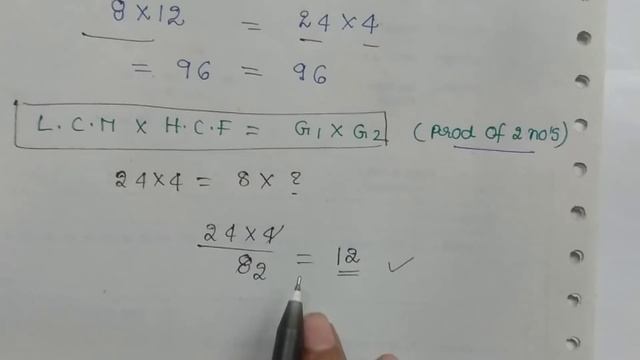 8 × 12 = 24 × 4
= 96 = 96
L.C.M × H.C.F = G1 × G2 (Prod Of 2 no's)
24×4 = 8 × ?
24 × 4
82 = 12 ✓